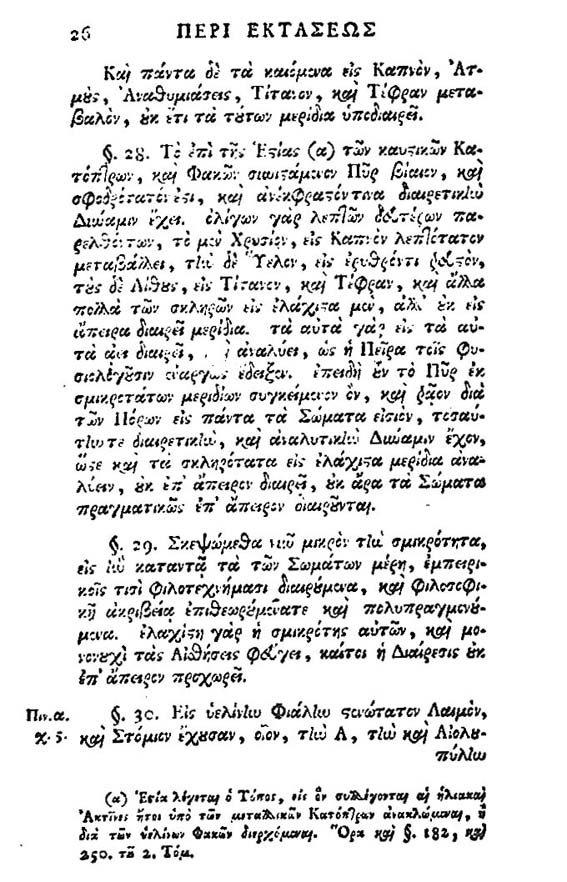 26 ΠΕΡΙ ΕΚΤΑΣΕΩΣ
Καὶ πάντα δὲ τὰ καιόμενα εἰς Καπνὸν, Ἀτ-
μὸς, Ἀναθυμιάσεις, Τίτανον, καὶ Τέφραν μετα-
βαλὸν, οὐκ ἔτι τὰ τούτων μερίδια ὑποδιαιρεῖ.
§. 28. Τὸ ἐπὶ τῆς Ἑστίας (α) τῶν καυστικῶν Κα-
τόπτρων, καὶ Φακῶν συνιστάμενον Πῦρ βίαιον, καὶ
σφοδρότατόν ἐστι, καὶ ἀνέκφραστόν τινα διαιρετικὴν
Δύναμιν ἔχει. ὀλίγων γὰρ λεπτῶν δευτέρων πα-
ρελθόντων, τὸ μὲν Χρυσίον, εἰς Καπνὸν λεπτότατον
μεταβάλλει, τὴν δὲ Ὕελον, εἰς ἐρυθρόν τι ῥευστὸν,
τοὺς δὲ Λίθους, εἰς Τίτανον, καὶ Τέφραν, καὶ ἄλλα
πολλὰ τῶν σκληρῶν εἰς ἐλάχιστα μὲν, ἀλλ' οὐκ εἰς
ἄπειρα διαιρεῖ μερίδια. τὰ αὐτὰ γὰρ εἰς τὰ αὐ-
τὰ ἀεὶ διαιρεῖ, ἀναλύει, ὡς ἡ Πεῖρα τοῖς Φυ-
σιολογοῦσιν ἐναργῶς ἔδειξεν. ἐπειδὴ οὖν τὸ Πῦρ ἐκ
σμικροτάτων μεριδίων συγκείμενον ὂν, καὶ ῥᾷον διὰ
τῶν Πόρων εἰς πάντα τὰ Σώματα εἰσιὸν, τοσαύ-
την τε διαιρετικὴν, καὶ ἀναλυτικὴν Δύναμιν ἔχον,
ὥστε καὶ τὰ σκληρότατα εἰς ἐλάχιστα μερίδια ἀνα-
λύειν, οὐκ ἐπ' ἄπειρον διαιρεῖ, οὐκ ἄρα τὰ Σώματα
πραγματικῶς ἐπ' ἄπειρον διαιροῦνται.
§. 29. Σκεψώμεθα νῦν μικρὸν τὴν σμικρότητα,
εἰς ἣν καταντᾷ τὰ τῶν Σωμάτων μέρη, ἐμπειρι-
κοῖς τισὶ Φιλοτεχνήμασι διαιρούμενα, καὶ Φιλοσοφι-
κῇ ἀκριβείᾳ ἐπιθεωρούμενά τε καὶ πολυπραγμονού-
μενα. ἐλαχίστη γὰρ ἡ σμικρότης αὐτῶν, καὶ μο-
νονουχὶ τὰς Αἰσθήσεις φεύγει, καίτοι ἡ Διαίρεσις οὐκ
ἐπ' ἄπειρον προχωρεῖ.
Πιν. α. §. 30. Εἰς ὑελίνην Φιάλην στενώτατον Λαιμὸν,
χ. 5. καὶ Στόμιον ἔχουσαν, οἷον, τὴν Α, τὴν καὶ Αἰολο-
πύλην
(α) Ἑστία λέγεται ὁ Τόπος, εἰς ὃν συλλέγονται αἱ ἡλιακαὶ
Ἀκτῖνες ἤτοι ὑπὸ τῶν μεταλλικῶν Κατόπτρων ἀνακλώμεναι, ἢ
διὰ τῶν ὑελίνων Φακῶν διερχόμεναι. Ὅρα καὶ §. 182, καὶ
250. τοῦ 2. Τόμ.